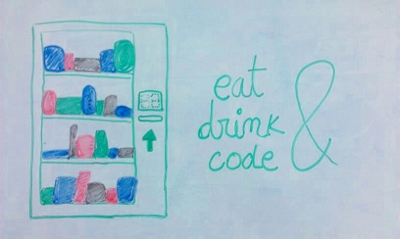 eat
drink &
code